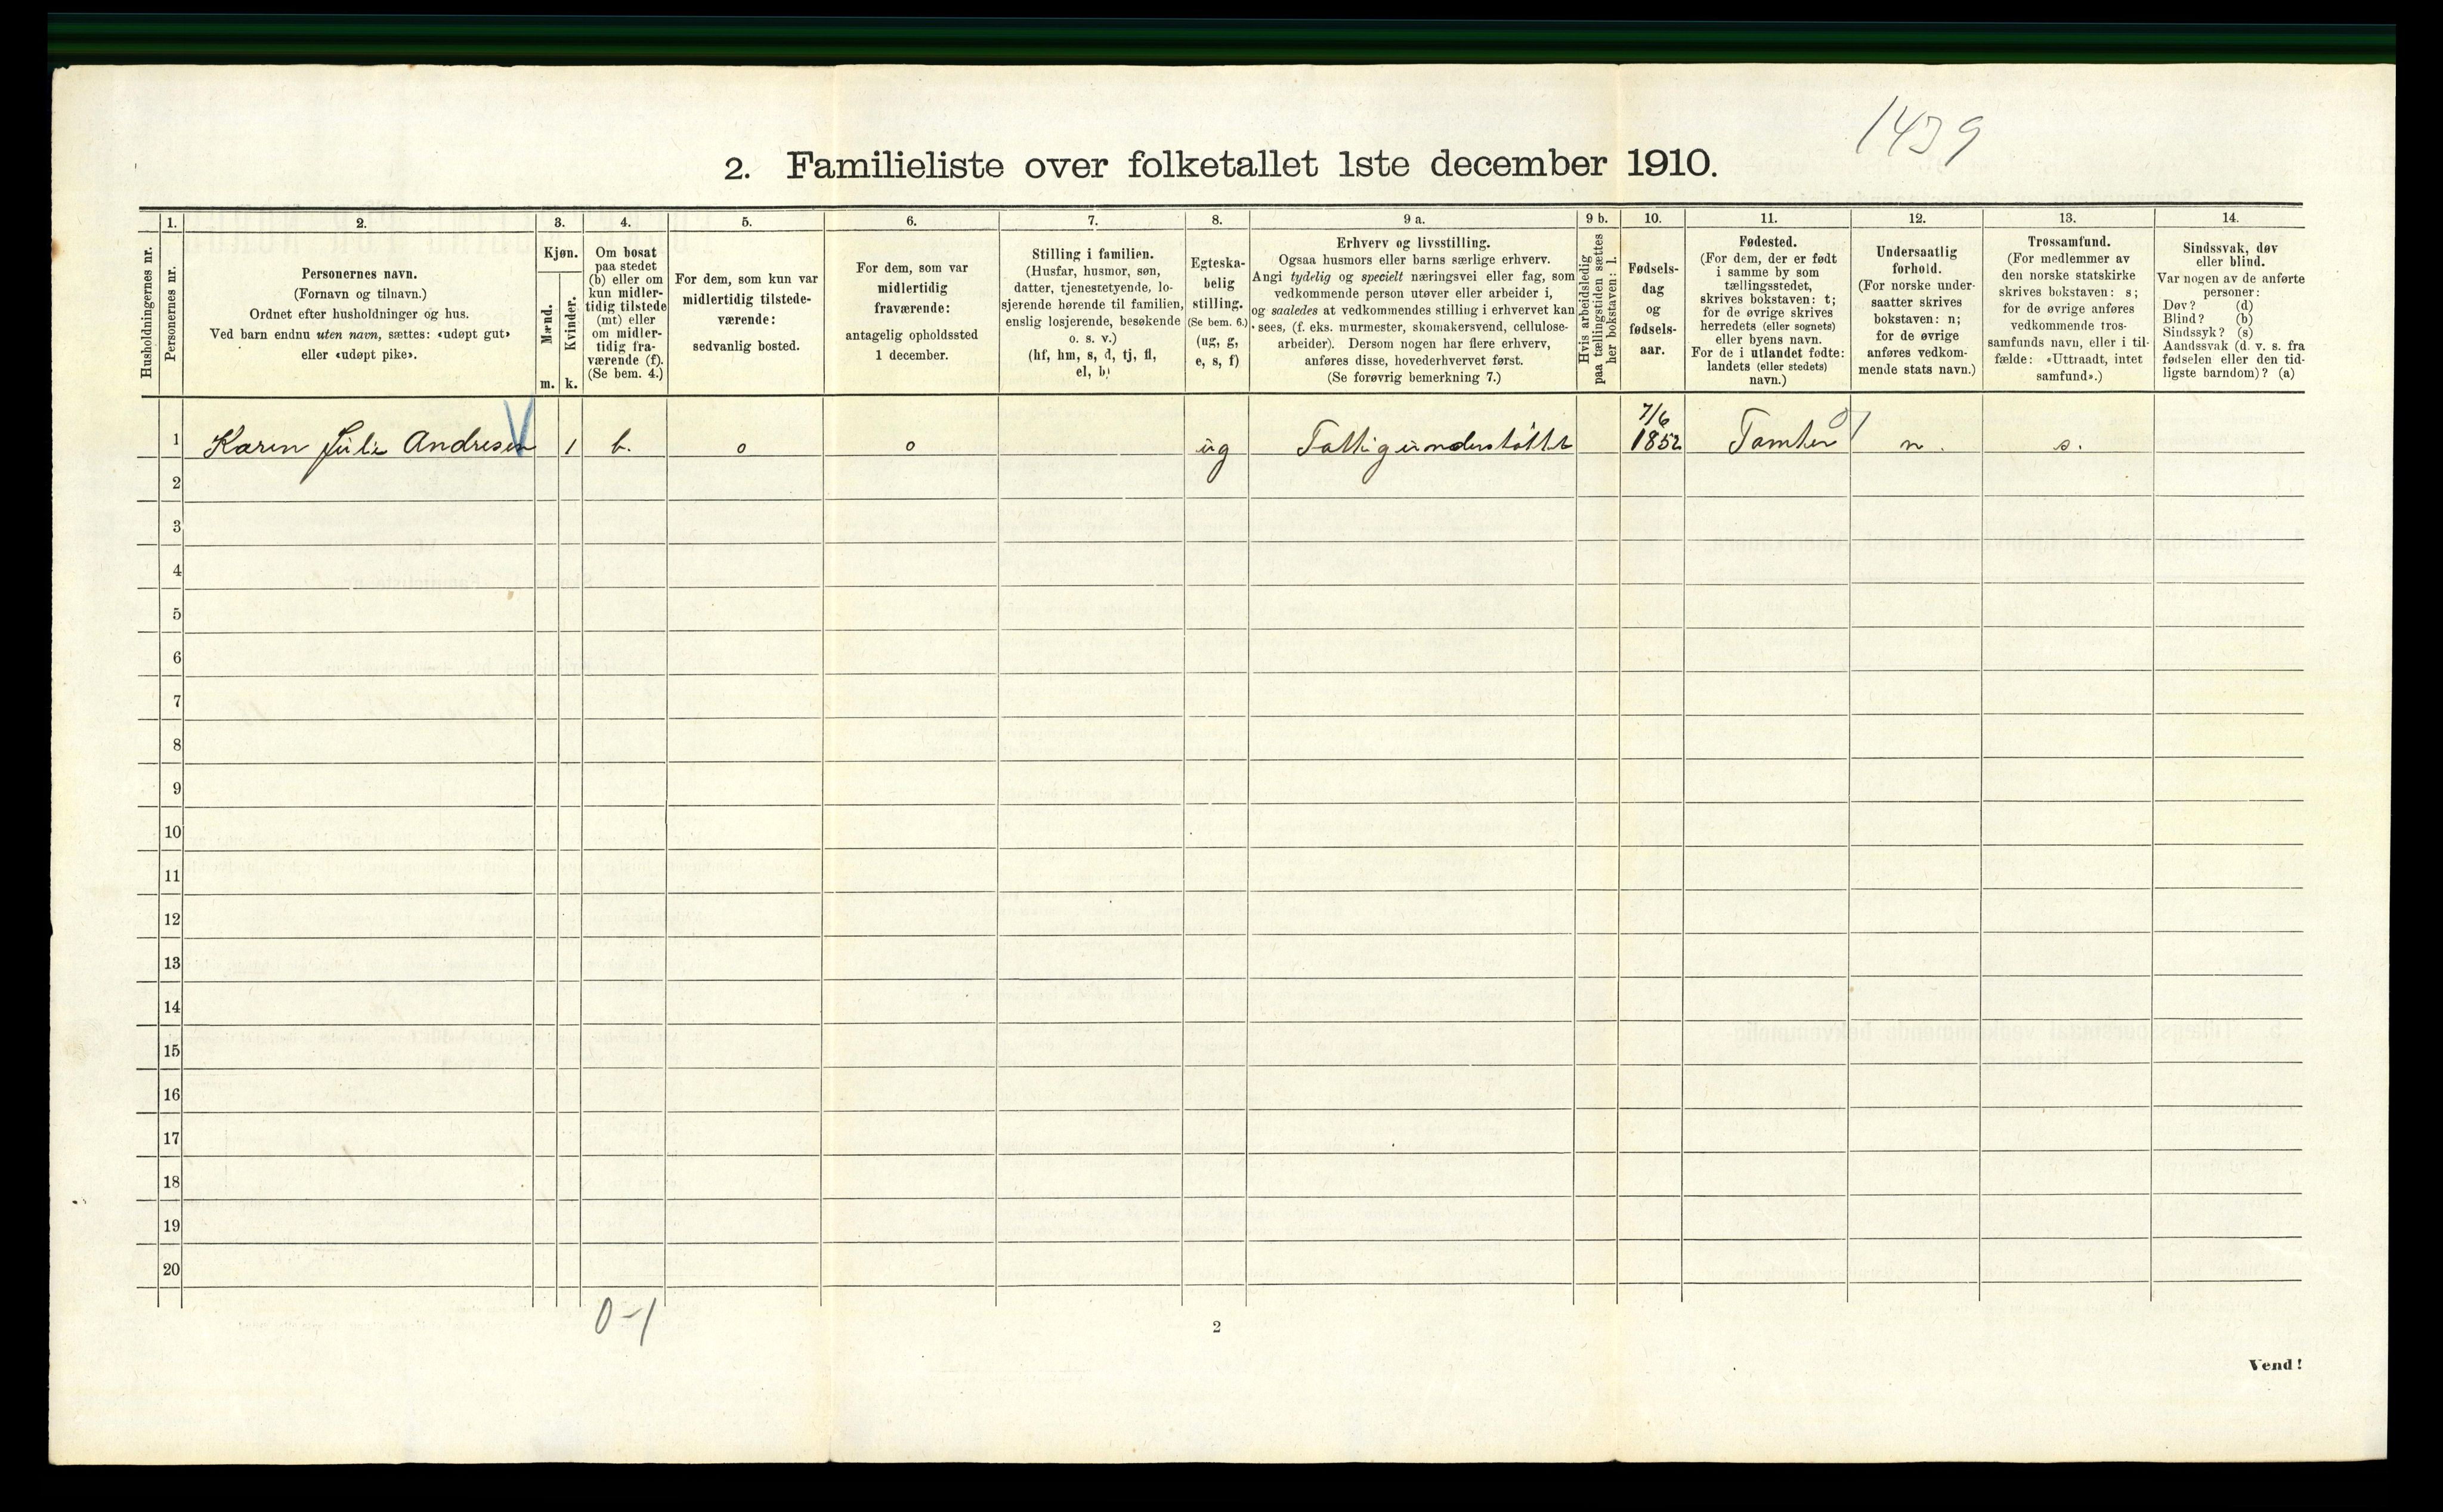 1439
2. Familieliste over folketallet 1ste december 1910.
Husholdningernes nr.
1.
Personernes nr.
2.
Personernes navn.
(Fornavn og tilnavn.)
Ordnet efter husholdninger og hus.
Ved barn endnu uten navn, sættes: «udøpt gut»
eller «udøpt pike».
3.
Kjøn.
Mænd.
m.
Kvinder.
k.
4.
Om bosat
paa stedet
(b) eller om
kun midler-
tidig tilstede
(mt) eller
om midler-
tidig fra-
værende (f).
(Se bem. 4.)
5.
For dem, som kun var
midlertidig tilstede-
værende:
sedvanlig bosted.
6.
For dem, som var
midlertidig
fraværende:
antagelig opholdssted
1 december.
7.
Stilling i familien.
(Husfar, husmor, søn,
datter, tjenestetyende, lo-
sjerende hørende til familien,
enslig losjerende, besøkende
o. s. v.)
(hf, hm, s, d, tj, fl,
el, b)
8.
Egteska-
belig
stilling.
(Se bem. 6.)
(ug, g,
e, s, f)
9 a.
Erhverv og livsstilling.
Ogsaa husmors eller barns særlige erhverv.
Angi tydelig og specielt næringsvei eller fag, som
vedkommende person utøver eller arbeider i,
og saaledes at vedkommendes stilling i erhvervet kan
sees, (f. eks. murmester, skomakersvend, cellulose-
arbeider). Dersom nogen har flere erhverv,
anføres disse, hovederhvervet først.
(Se forøvrig bemerkning 7.)
9 b.
Hvis arbeidsledig
paa tællingstiden sættes
her bokstaven: l.
10.
Fødsels-
dag
og
fødsels-
aar.
11.
Fødested.
(For dem, der er født
i samme by som
tællingsstedet,
skrives bokstaven: t;
for de øvrige skrives
herredets (eller sognets)
eller byens navn.
For de i utlandet fødte:
landets (eller stedets)
navn.)
12.
Undersaatlig
forhold.
(For norske under-
saatter skrives
bokstaven: n;
for de øvrige
anføres vedkom-
mende stats navn.)
13.
Trossamfund.
(For medlemmer av
den norske statskirke
skrives bokstaven: s;
for de øvrige anføres
vedkommende tros-
samfunds navn, eller i til-
fælde: «Uttraadt, intet
samfund».)
14.
Sindssvak, døv
eller blind.
Var nogen av de anførte
personer:
Døv? (d)
Blind? (b)
Sindssyk? (s)
Aandssvak (d. v. s. fra
fødselen eller den tid-
ligste barndom)? (a)
1 Karen Julie Andresen 1 b. o o ug Fattigunderstøttet 7/6 1852 n. s.
2
3
4
5
6
7
8
9
10
11
12
13
14
15
16
17
18
19
20
0-1
2
Vend!